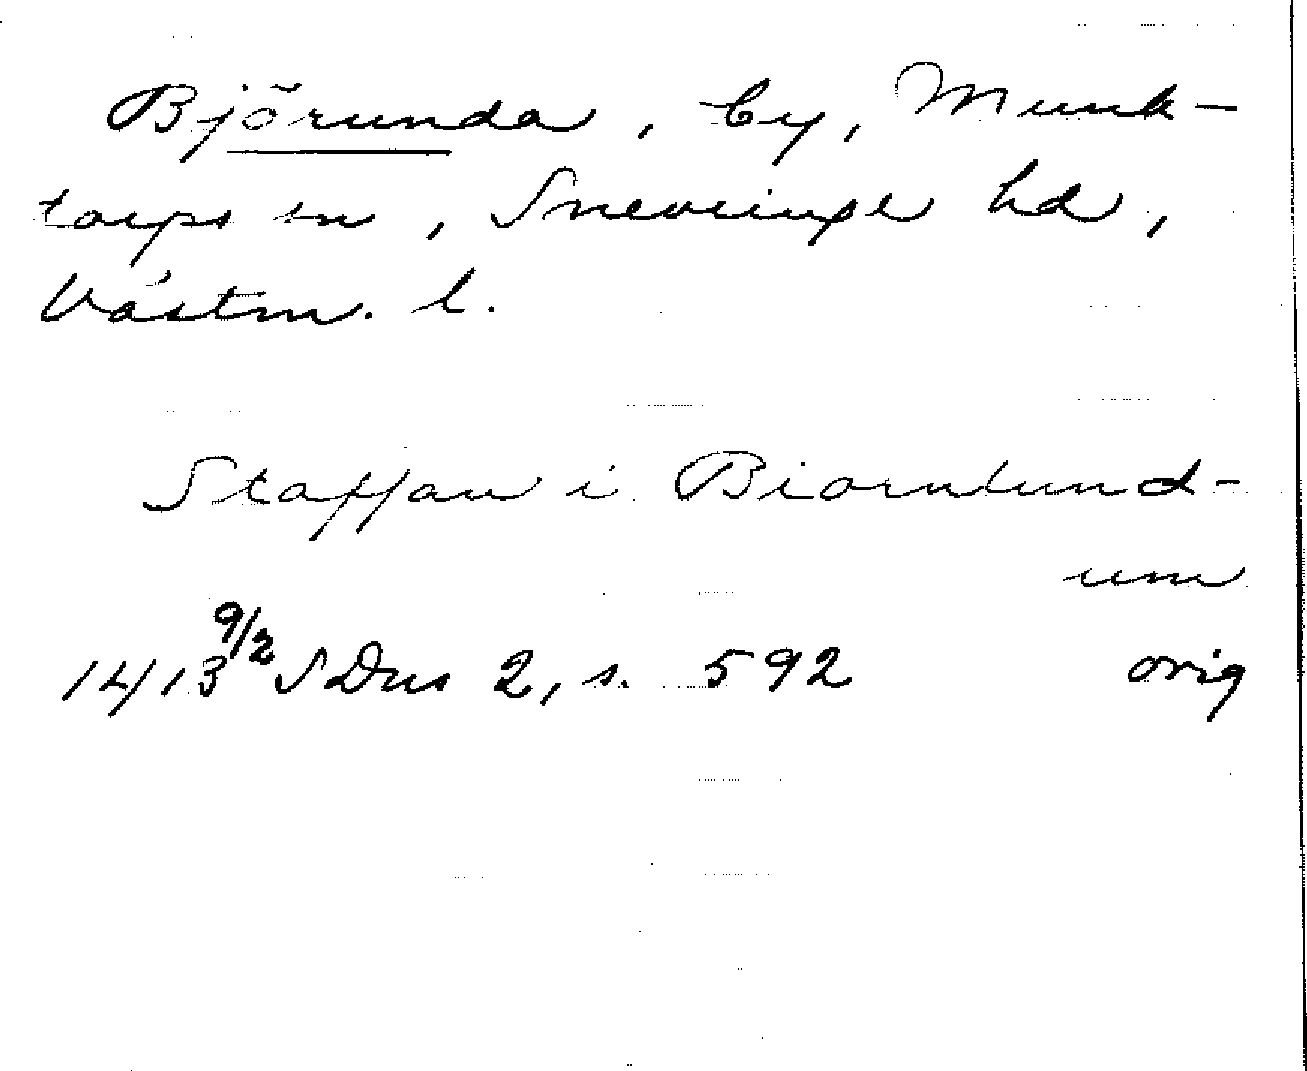 Björunda, by, Munk-
torps sn, Snevringe hd,
Västm. l.
Staffan i Biornlund-
um
1413 9/2 SDns 2, s. 592 orig